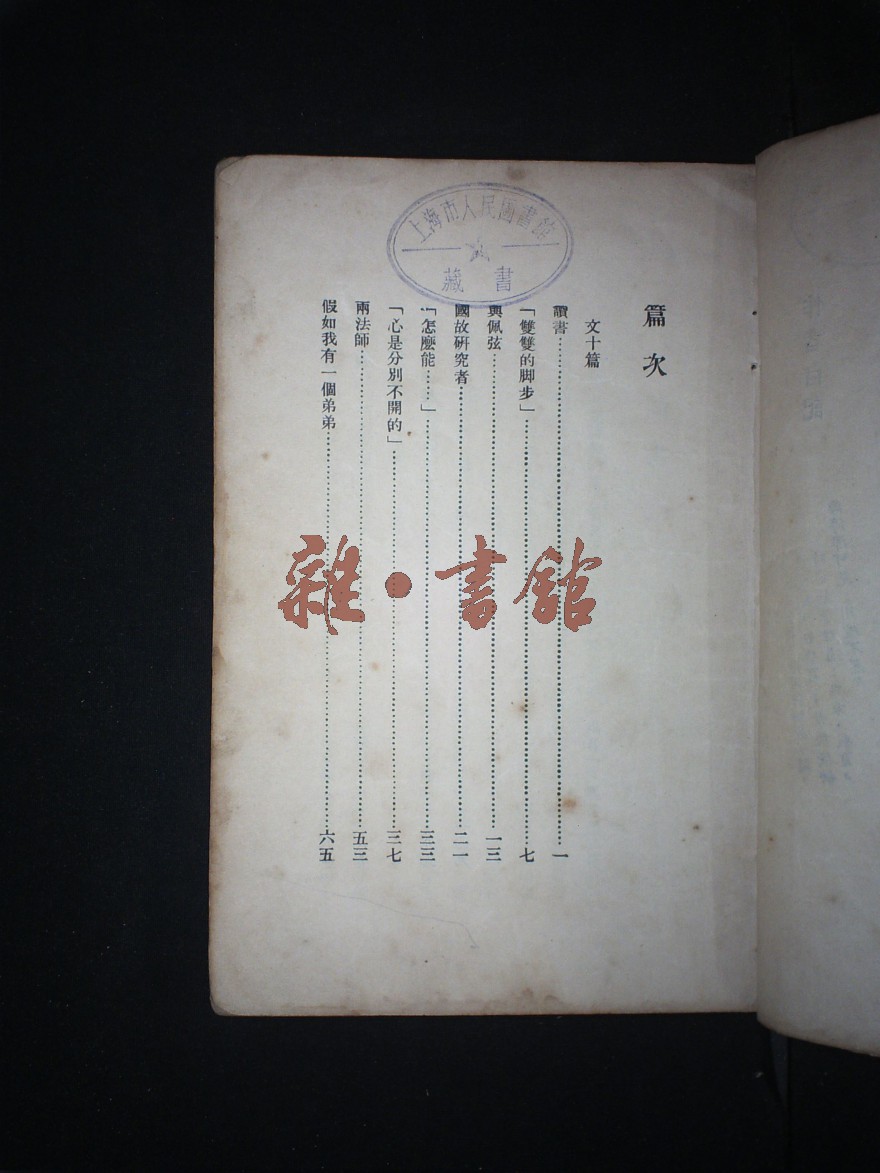 上海市人民圖書館
藏書
篇次
文十篇
讀書……一
「雙雙的脚步」……七
與佩弦……一三
國故研究者……二一
「怎麼能……」……三三
「心是分別不開的」……三七
兩法師……五三
假如我有一個弟弟……六五
雜·書館